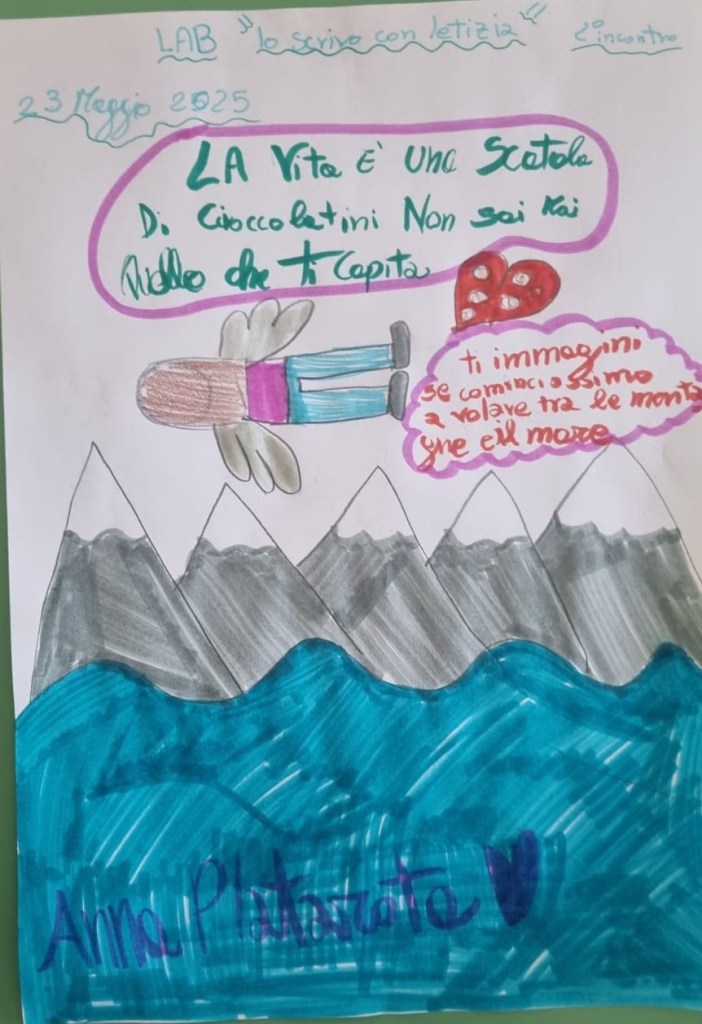 LAB "Io scrivo con letizia" 2° incontro
23 Maggio 2025
LA Vita È Una Scatola
Di Cioccolatini Non sai Mai
Quello che ti Capita
ti immagini
se cominciassimo
a volare tra le monta
gne e il mare
Anna Platarota